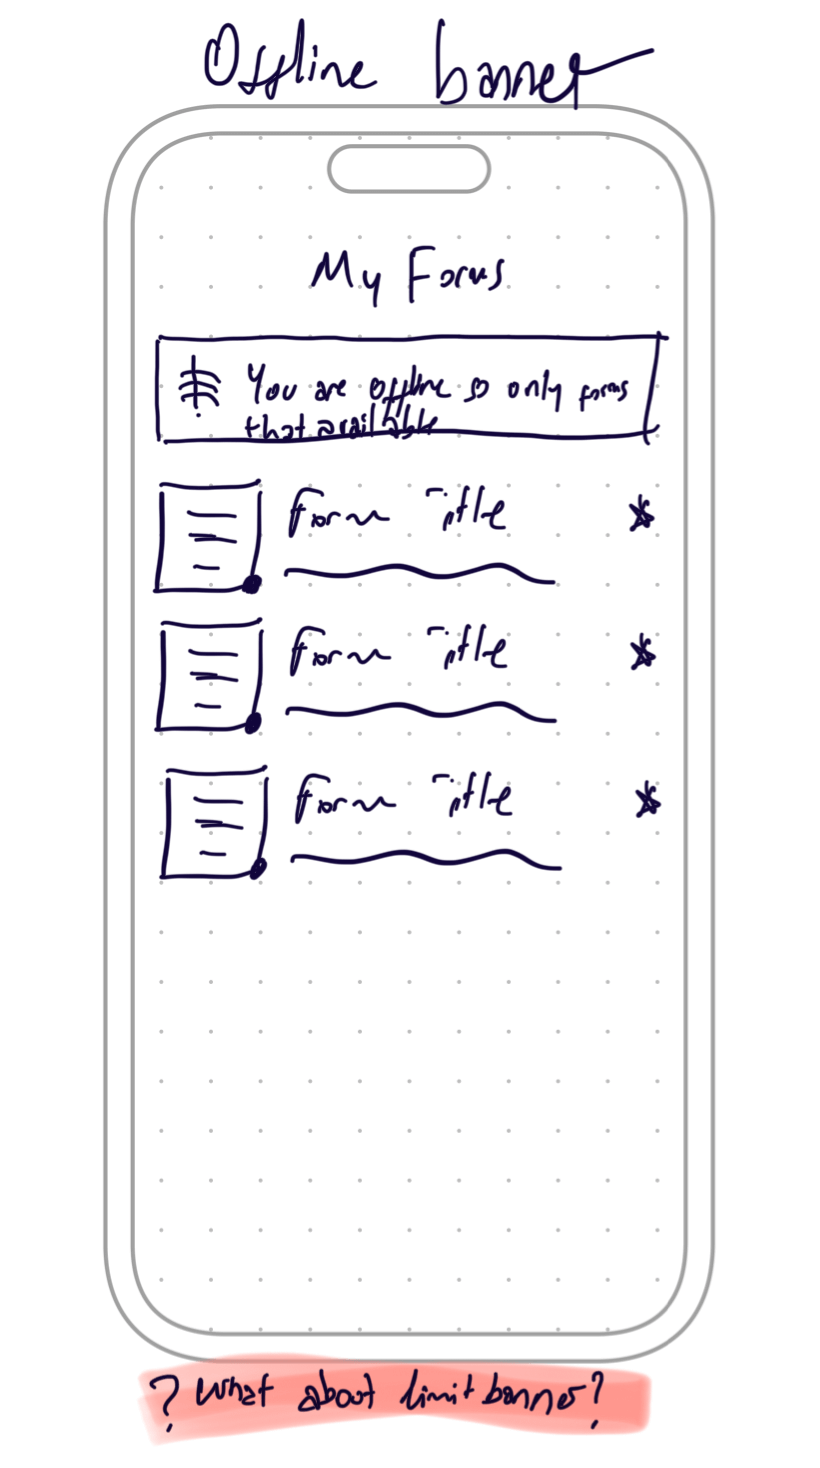 Offline banner
My Forms
You are offline so only forms
that available
Form Title
Form Title
Form Title
? What about limit banner?